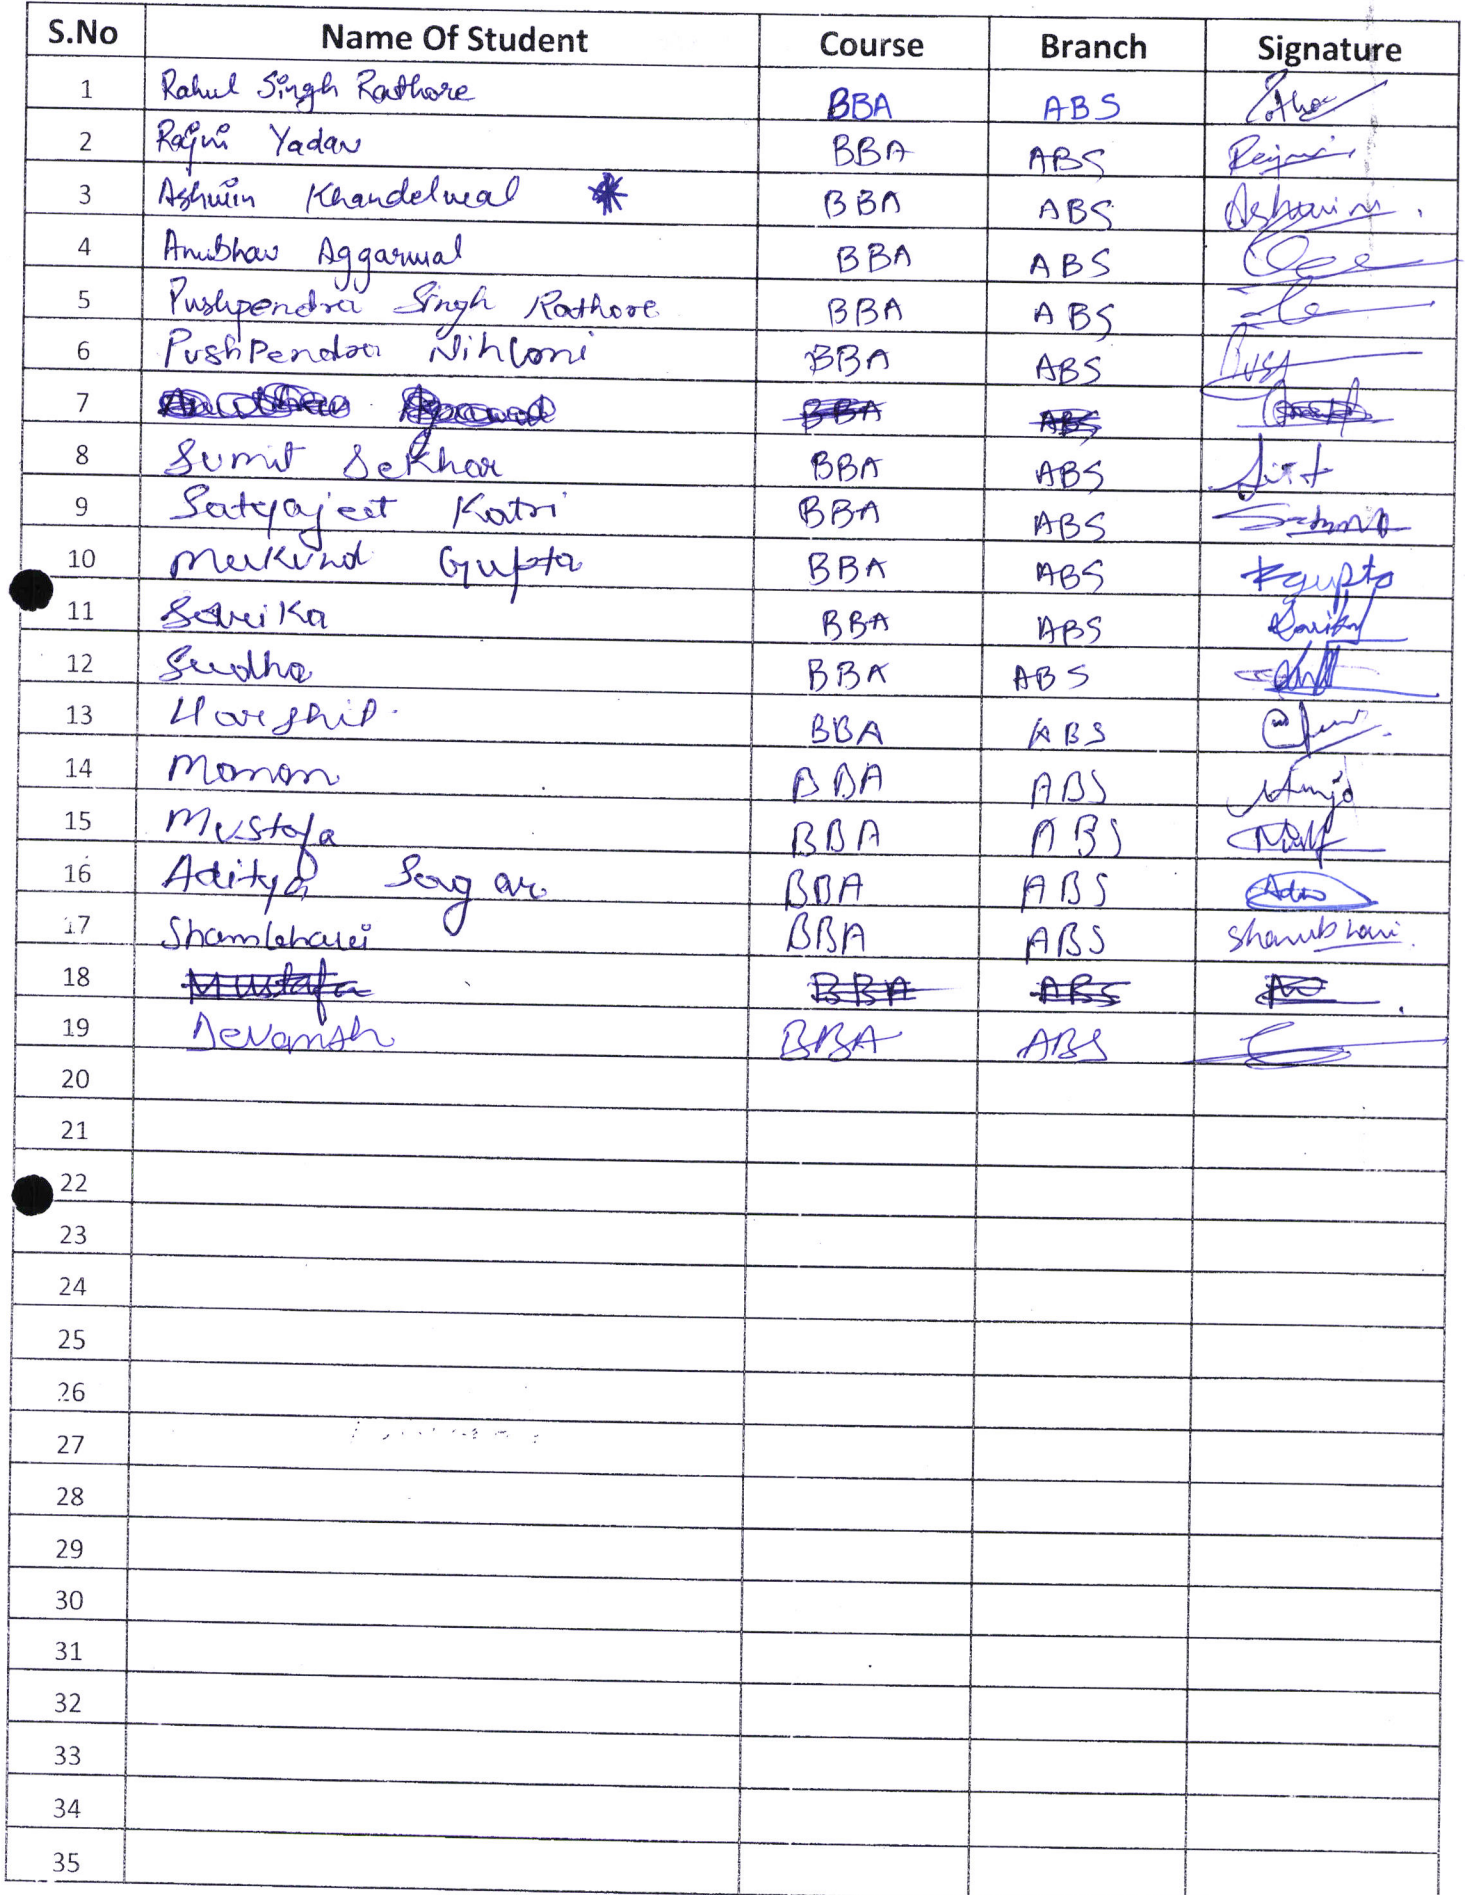 S.No Name Of Student Course Branch Signature
1 Rahul Singh Rathore BBA ABS
2 Rajni Yadav BBA ABS Rajni
3 Ashwin Khandelwal BBA ABS Ashwin
4 Anubhav Aggarwal BBA ABS
5 Pushpendra Singh Rathore BBA ABS
6 PushPendra BBA ABS
7 BBA ABS
8 Sumit Sekhar BBA ABS
9 Satyajeet Katri BBA ABS
10 Mukund Gupta BBA ABS Kgupta
11 Sarika BBA ABS Sarika
12 Sudha BBA ABS
13 Harshit BBA ABS
14 Manan BBA ABS
15 Mustafa BBA ABS
16 Aditya Sagar BBA ABS
17 Shambhavi BBA ABS Shambhavi
18 Mustafa BBA ABS
19 Devansh BBA ABS
20
21
22
23
24
25
26
27
28
29
30
31
32
33
34
35